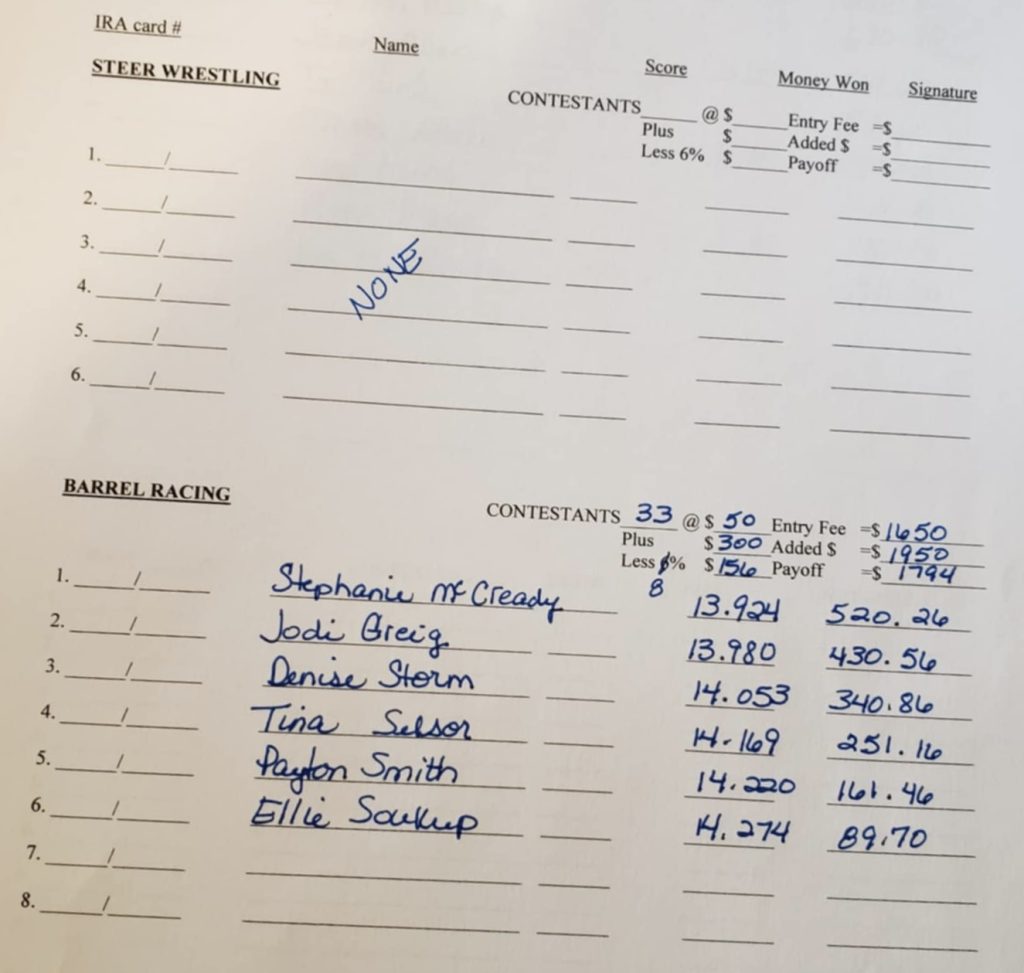 IRA card # Name Score Money Won Signature
STEER WRESTLING
CONTESTANTS ______ @ $ ______ Entry Fee =$ ______
Plus $ ______ Added $ =$ ______
Less 6% $ ______ Payoff =$ ______
1. _____/_____
2. _____/_____
3. _____/_____
NONE
4. _____/_____
5. _____/_____
6. _____/_____
BARREL RACING
CONTESTANTS 33 @ $ 50 Entry Fee =$ 1650
Plus $ 300 Added $ =$ 1950
Less 6% $ 156 Payoff =$ 1794
8
1. _____/_____ Stephanie McCready 13.924 520.26
2. _____/_____ Jodi Greig 13.980 430.56
3. _____/_____ Denise Storm 14.053 340.86
4. _____/_____ Tina Selsor 14.169 251.16
5. _____/_____ Payton Smith 14.220 161.46
6. _____/_____ Ellie Soukup 14.274 89.70
7. _____/_____
8. _____/_____